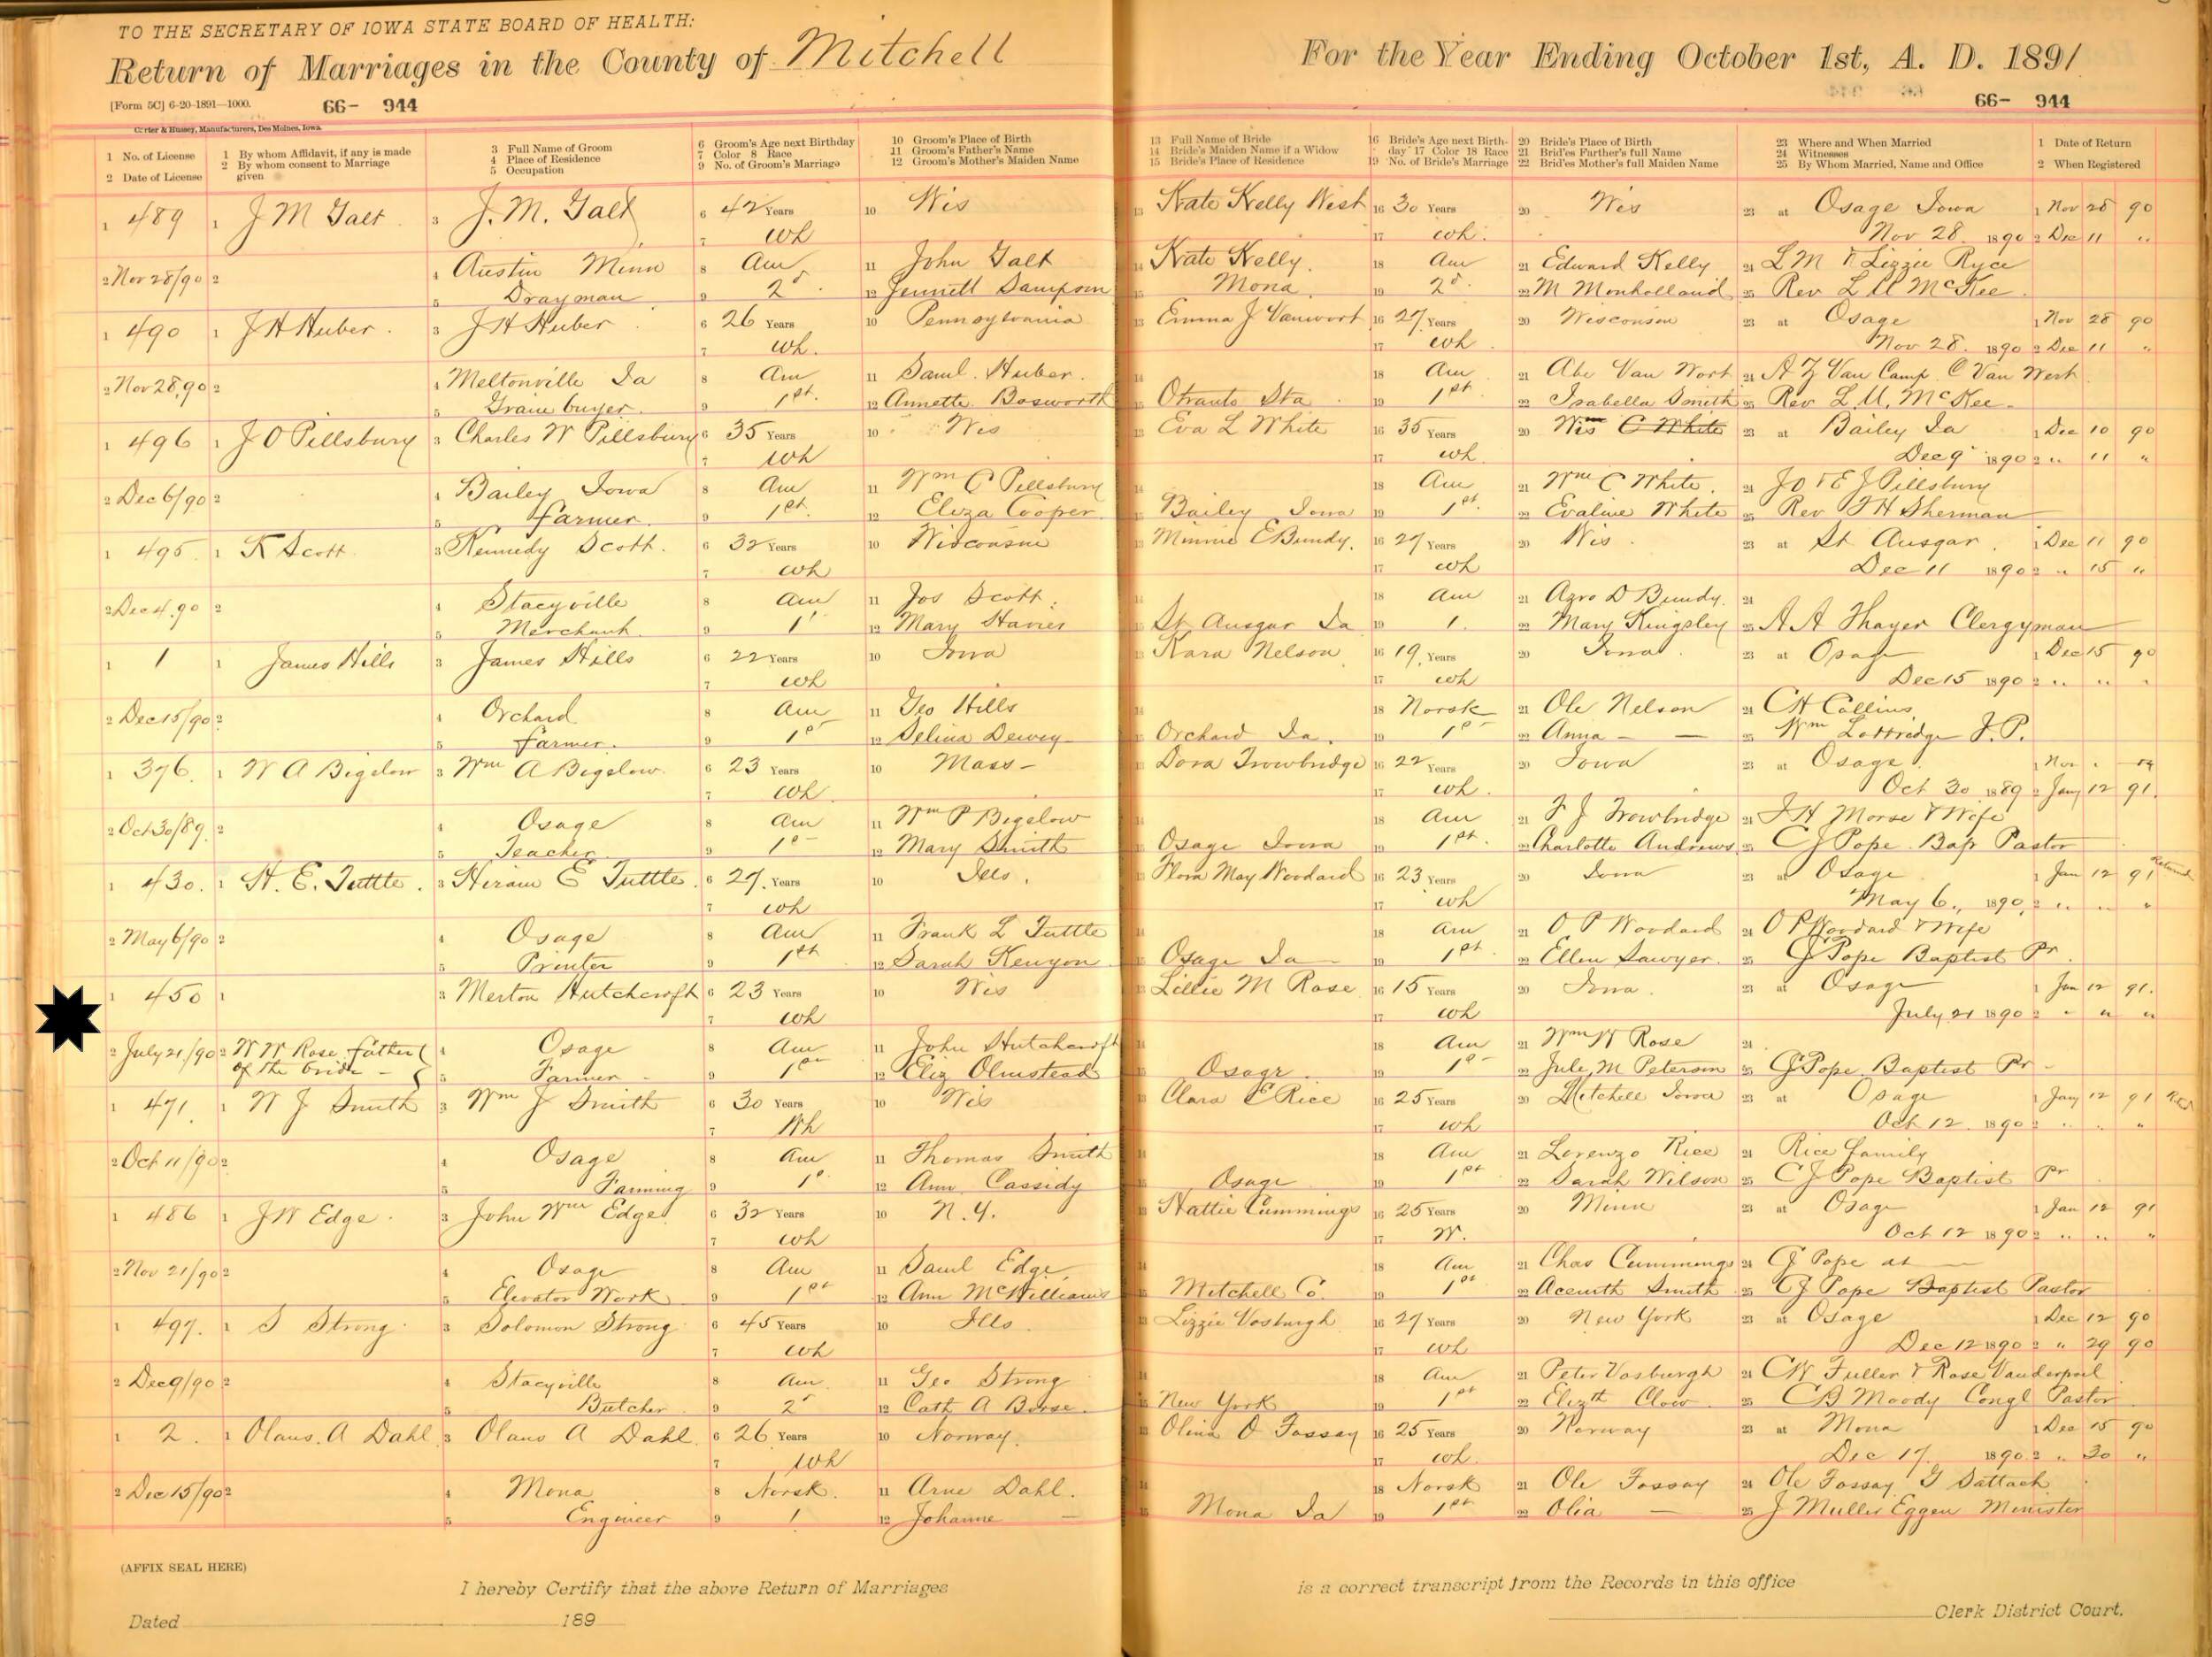 TO THE SECRETARY OF IOWA STATE BOARD OF HEALTH:
Return of Marriages in the County of Mitchell
For the Year Ending October 1st, A. D. 1891
[Form 5C] 6-20-1891—1000.
66- 944
66- 944
Carter & Hussey, Manufacturers, Des Moines, Iowa.
1 No. of License
2 Date of License
1 By whom Affidavit, if any is made
2 By whom consent to Marriage given
3 Full Name of Groom
4 Place of Residence
5 Occupation
6 Groom's Age next Birthday
7 Color 8 Race
9 No. of Groom's Marriage
10 Groom's Place of Birth
11 Groom's Father's Name
12 Groom's Mother's Maiden Name
13 Full Name of Bride
14 Bride's Maiden Name if a Widow
15 Bride's Place of Residence
16 Bride's Age next Birth-
day 17 Color 18 Race
19 No. of Bride's Marriage
20 Bride's Place of Birth
21 Brid'es Farther's full Name
22 Brid'es Mother's full Maiden Name
23 Where and When Married
24 Witnesses
25 By Whom Married, Name and Office
1 Date of Return
2 When Registered
1 489 1 J M Galt 3 J. M. Galt 6 42 Years 10 Wis 13 Kate Kelly West 16 30 Years 20 Wis 23 at Osage Iowa 1 Nov 28 90
7 Wh 17 Wh. Nov 28 1890 2 Dec 11 "
2 Nov 28/90 2 4 Austin Minn 8 Am 11 John Galt 14 Kate Kelly. 18 Am 21 Edward Kelly 24 L M & Lizzie Ryce
5 Drayman 9 2d 12 Jennett Sampson 15 Mona 19 2d 22 M Monholland 25 Rev L U McKee
1 490 1 J H Huber 3 J H Huber 6 26 Years 10 Pennsylvania 13 Emma J Vanwort 16 27 Years 20 Wisconsin 23 at Osage 1 Nov 28 90
7 Wh. 17 Wh Nov 28. 1890 2 Dec 11 "
2 Nov 28,90 2 4 Meltonville Ia 8 Am 11 Saml. Huber. 14 18 Am 21 Abe Van Wort 24 A Z Van Camp C Van Wert
5 Grain buyer. 9 1st. 12 Annette Bosworth 15 Otranto Sta 19 1st 22 Isabella Smith 25 Rev L. U. McKee
1 496 1 J O Pillsbury 3 Charles W Pillsbury 6 35 Years 10 Wis 13 Eva L White 16 35 Years 20 Wis C White 23 at Bailey Ia 1 Dec 10 90
7 Wh 17 Wh. Dec 9 1890 2 " 11 "
2 Dec 6/90 2 4 Bailey Iowa 8 Am 11 Wm C Pillsbury 14 18 Am 21 Wm C White. 24 J O & E J Pillsbury
5 farmer. 9 1st. 12 Eliza Cooper 15 Bailey Iowa 19 1st. 22 Evaline White 25 Rev F H Sherman
1 495. 1 K Scott 3 Kennedy Scott. 6 32 Years 10 Wisconsin 13 Minnie E Bundy. 16 27 Years 20 Wis 23 at St Ansgar 1 Dec 11 90
7 Wh 17 Wh Dec 11 1890 2 " 15 "
2 Dec 4.90 2 4 Stacyville 8 Am 11 Jos Scott. 14 18 Am 21 D Bundy. 24
5 Merchant. 9 1 12 Mary 15 St Ansgar Ia 19 1. 22 Mary Kingsley 25 A A Thayer Clergyman
1 1 1 James Hills 3 James Hills 6 22 Years 10 Iowa 13 Kara Nelson 16 19 Years 20 Iowa 23 at Osage 1 Dec 15 90
7 Wh 17 Wh Dec 15 1890 2 " " "
2 Dec 15/90 2 4 Orchard 8 Am 11 Geo Hills 14 18 Norsk 21 Ole Nelson 24 C H Collins
5 farmer. 9 1st 12 Selina Dewey 15 Orchard Ia. 19 1st 22 Anna — — 25 Wm Lottridge J. P.
1 376. 1 W A Bigelow 3 Wm A Bigelow. 6 23 Years 10 Mass— 13 Dora Trowbridge 16 22 Years 20 Iowa 23 at Osage 1 Nov
7 Wh 17 Wh. Oct 30 1889 2 Jany 12 91.
2 Oct 30/89. 2 4 Osage 8 Am 11 Wm P Bigelow 14 18 Am 21 F J Trowbridge 24 J H Morse & Wife
5 Teacher 9 1st 12 Mary Smith 15 Osage Iowa 19 1st. 22 Charlotte Andrews 25 C J Pope Bap Pastor
1 430. 1 H. E. Tuttle. 3 Hiram E Tuttle. 6 27. Years 10 Ills. 13 Flora May Woodard 16 23 Years 20 Iowa 23 at Osage 1 Jan 12 91
7 Wh 17 Wh May 6., 1890. 2 " " "
2 May 6/90 2 4 Osage 8 Am 11 Frank L Tuttle 14 18 Am 21 O P Woodard 24 O P Woodard & Wife
5 Printer 9 1st 12 Sarah Kenyon 15 Osage Ia 19 1st 22 Ellen Sawyer. 25 CJ Pope Baptist Pr.
1 450 1 3 Merton Hutchcroft 6 23 Years 10 Wis 13 Lillie M Rose 16 15 Years 20 Iowa. 23 at Osage 1 Jan 12 91.
7 Wh 17 Wh July 21 1890 2 " " "
2 July 21/90 2 W W Rose father 4 Osage 8 Am 11 John Hutchcroft 14 18 Am 21 Wm W Rose 24
of the bride — 5 Farmer — 9 1st 12 Eliz Olmstead 15 Osage. 19 1st 22 Jule M Peterson 25 CJ Pope Baptist Pr —
1 471. 1 W J Smith 3 Wm J Smith 6 30 Years 10 Wis 13 Clara E Rice 16 25 Years 20 Mitchell Iowa 23 at Osage 1 Jany 12 91
7 Wh 17 Wh Oct 12. 1890 2 " " "
2 Oct 11/90 2 4 Osage 8 Am 11 Thomas Smith 14 18 Am 21 Lorenzo Rice 24 Rice family
5 Farming 9 1st 12 Ann Cassidy 15 Osage 19 1st 22 Sarah Wilson 25 C J Pope Baptist Pr
1 486 1 J W Edge 3 John Wm Edge 6 32 Years 10 N. Y. 13 Hattie Cummings 16 25 Years 20 Minn 23 at Osage 1 Jan 12 91
7 Wh 17 W. Oct 12 1890 2 " " "
2 Nov 21/90 2 4 Osage 8 Am 11 Saml Edge 14 18 Am 21 Chas Cummings 24 CJ Pope at
5 Elevator Work 9 1st 12 Ann McWilliams 15 Mitchell Co. 19 1st 22 Smith 25 CJ Pope Baptist Pastor
1 497. 1 S Strong 3 Solomon Strong 6 45 Years 10 Ills 13 Lizzie Vosburgh 16 27 Years 20 New York 23 at Osage 1 Dec 12 90
7 Wh 17 Wh Dec 12 1890 2 " 29 90
2 Dec 9/90 2 4 Stacyville 8 Am. 11 Geo Strong 14 18 Am 21 Peter Vosburgh 24 C W Fuller & Rose Vanderpool
5 Butcher 9 2d 12 Cath A 15 New York 19 1st 22 Elizth Clow 25 C B Moody Congl Pastor
1 2. 1 Olaus. A Dahl 3 Olaus A Dahl. 6 26 Years 10 Norway. 13 Olina O Fossay 16 25 Years 20 Norway 23 at Mona 1 Dec 15 90
7 Wh 17 Wh. Dec 17. 1890 2 " 30 "
2 Dec 15/90 2 4 Mona 8 Norsk. 11 Arne Dahl. 14 18 Norsk 21 Ole Fossay 24 Ole Fossay G
5 Engineer 9 1 12 Johanne — 15 Mona Ia 19 1st 22 Olia — 25 J Muller Eggen Minister
(AFFIX SEAL HERE)
I hereby Certify that the above Return of Marriages is a correct transcript from the Records in this office
Dated 189
Clerk District Court.